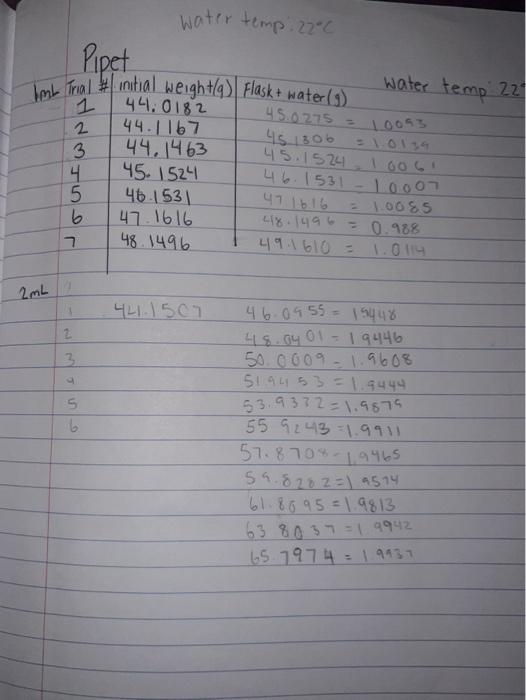 Water temp: 22°C
Pipet
Water temp: 22°
1mL Trial # initial weight(g) Flask + water (g)
1 44.0182 45.0275 = 1.0093
2 44.1167 45.1306 = 1.0139
3 44.1463 45.1524 = 1.0061
4 45.1524 46.1531 = 1.0007
5 46.1531 47.1616 = 1.0085
6 47.1616 48.1496 = 0.988
7 48.1496 49.1610 = 1.0114
2mL
1 44.1507 46.0955 = 1.9448
2 48.0401 = 1.9446
3 50.0009 = 1.9608
4 51.9453 = 1.9444
5 53.9332 = 1.9879
6 55.9243 = 1.9911
57.8708 = 1.9465
59.8282 = 1.9574
61.8095 = 1.9813
63.8037 = 1.9942
65.7974 = 1.9937